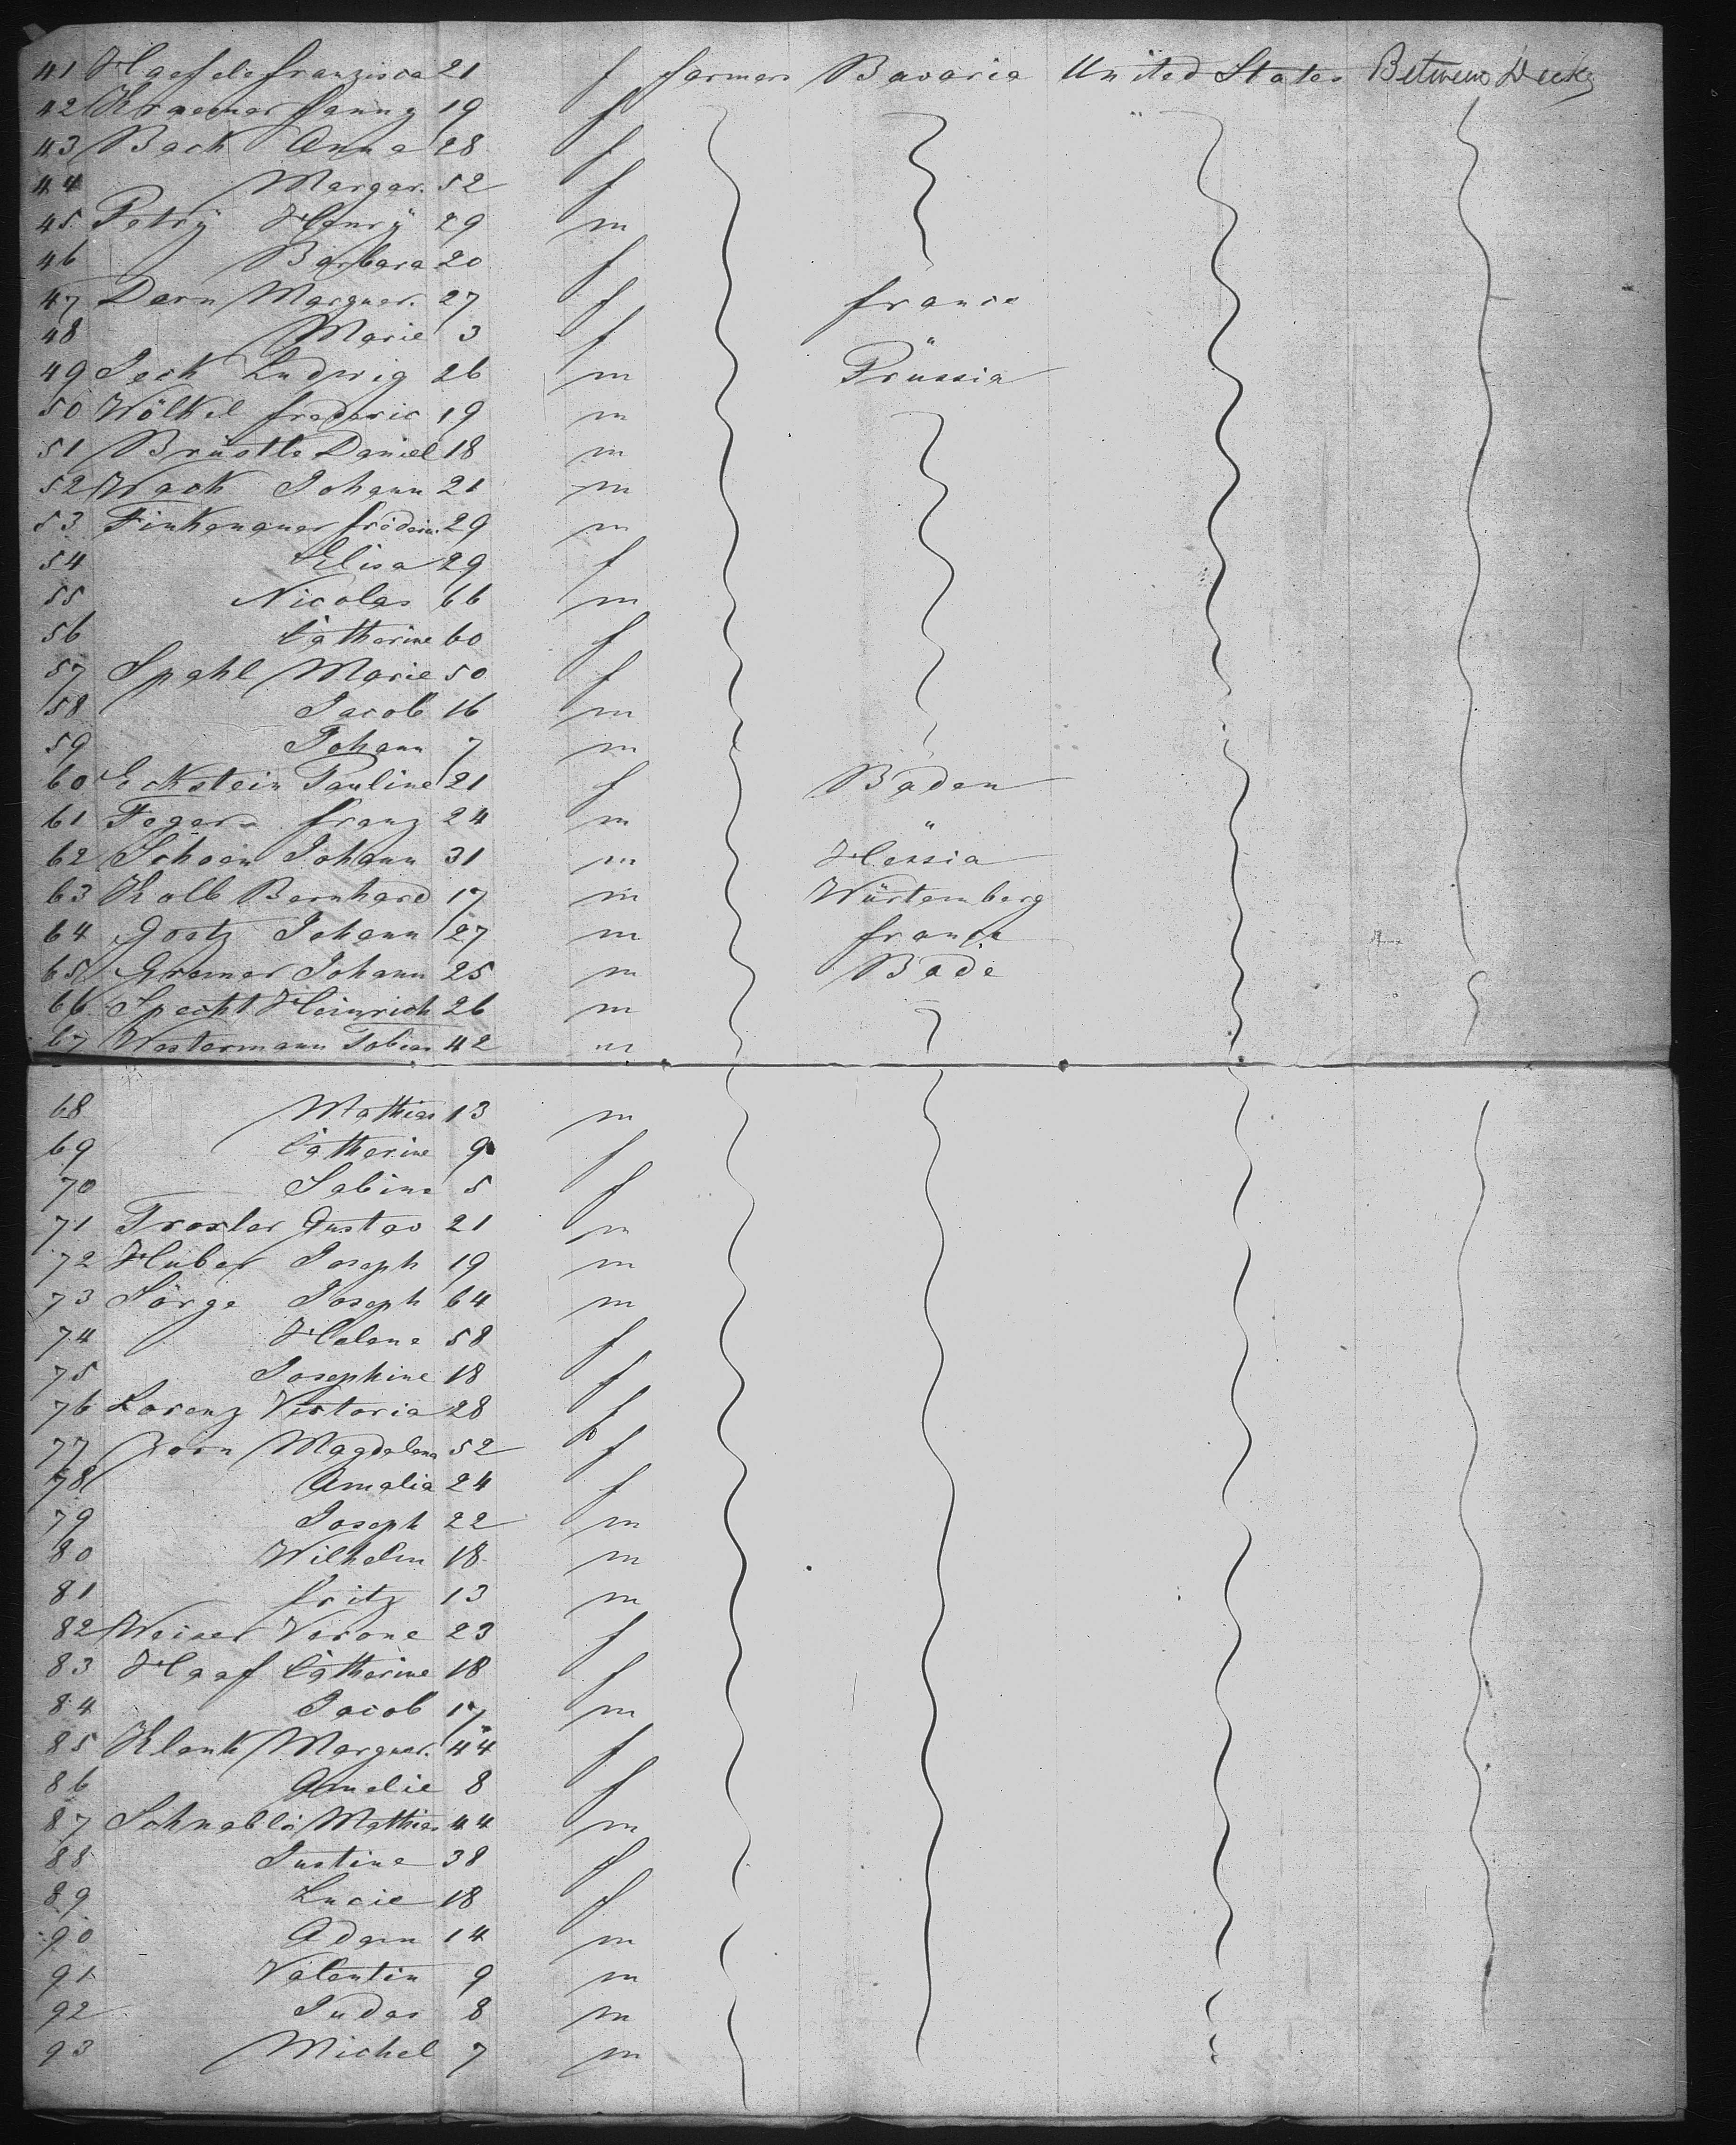 41 Haefele Franzisca 21 f farmers Bavaria United States Between Decks
42 Kraemer Fanny 19 f
43 Back Anna 28 f
44 Margar. 52 f
45 Petrÿ Henrÿ 29 m
46 Barbara 20 f
47 Darn Marguer. 27 f france
48 Marie 3 f "
49 Jeck Ludwig 26 m Prussia
50 Wölkel frederic 19 m
51 Brüstle Daniel 18 m
52 Wack Johann 21 m
53 Finkenauer frederic 29 m
54 Elisa 29 f
55 Nicolas 66 m
56 Catherine 60 f
57 Spahl Marie 50 f
58 Jacob 16 m
59 Johann 7 m
60 Eckstein Pauline 21 f Baden
61 Feger franz 24 m "
62 Schoen Johann 31 m Hessia
63 Kolb Bernhard 17 m Würtemberg
64 Goetz Johann 27 m france
65 Gremer Johann 25 m Bade
66 Specht Heinrich 26 m
67 Westermann Tobias 42 m
68 Mathias 13 m
69 Catherine 9 f
70 Sabine 5 f
71 Troxler Gustav 21 m
72 Huber Joseph 19 m
73 Sörge Joseph 64 m
74 Helene 58 f
75 Josephine 18 f
76 Lorenz Victoria 28 f
77 Born Magdalena 52 f
78 Amalia 24 f
79 Joseph 22 m
80 Wilhelm 18 m
81 fritz 13 m
82 Weiser Verone 23 f
83 Haaf Catherine 18 f
84 Jacob 17 m
85 Klenk Marguer. 44 f
86 Amelie 8 f
87 Schnebli Mathias 44 m
88 Justine 38 f
89 Lucie 18 f
90 Adam 14 m
91 Valentin 9 m
92 Judas 8 m
93 Michel 7 m